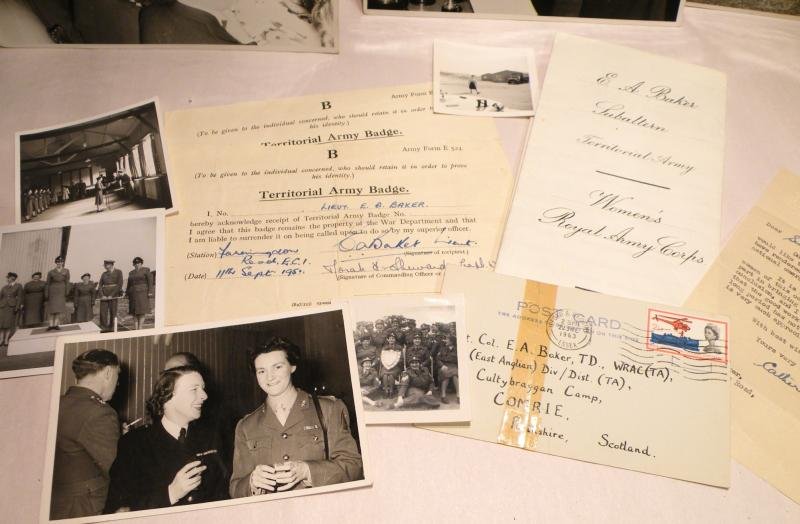 B
Army Form E
(To be given to the individual concerned, who should retain it in order
his identity.)
Territorial Army Badge.
B
Army Form E 524.
(To be given to the individual concerned, who should retain it in order to prove
his identity.)
Territorial Army Badge.
I, No. LIEUT. E. A. BAKER.
hereby acknowledge receipt of Territorial Army Badge No.
I agree that this badge remains the property of the War Department and that
I am liable to surrender it on being called upon to do so by my superior officer.
(Station) Farringdon
Road, E.C.1.
EABaker Lieut.
(Signature of recipient.)
(Date) 11th Sept 1951.
(Signature of Commanding Officer or
E. A Baker
Subaltern
Territorial Army
Women's
Royal Army Corps
POST CARD
THE ADDRESS
ON THIS SIDE
1963
ESSEX
Lt. Col. E. A. Baker, TD., WRAC(TA),
(East Anglian) Div/Dist. (TA),
Cultybraggan Camp,
COMRIE,
Perthshire, Scotland.
Dear
With best
Yours very
Road,